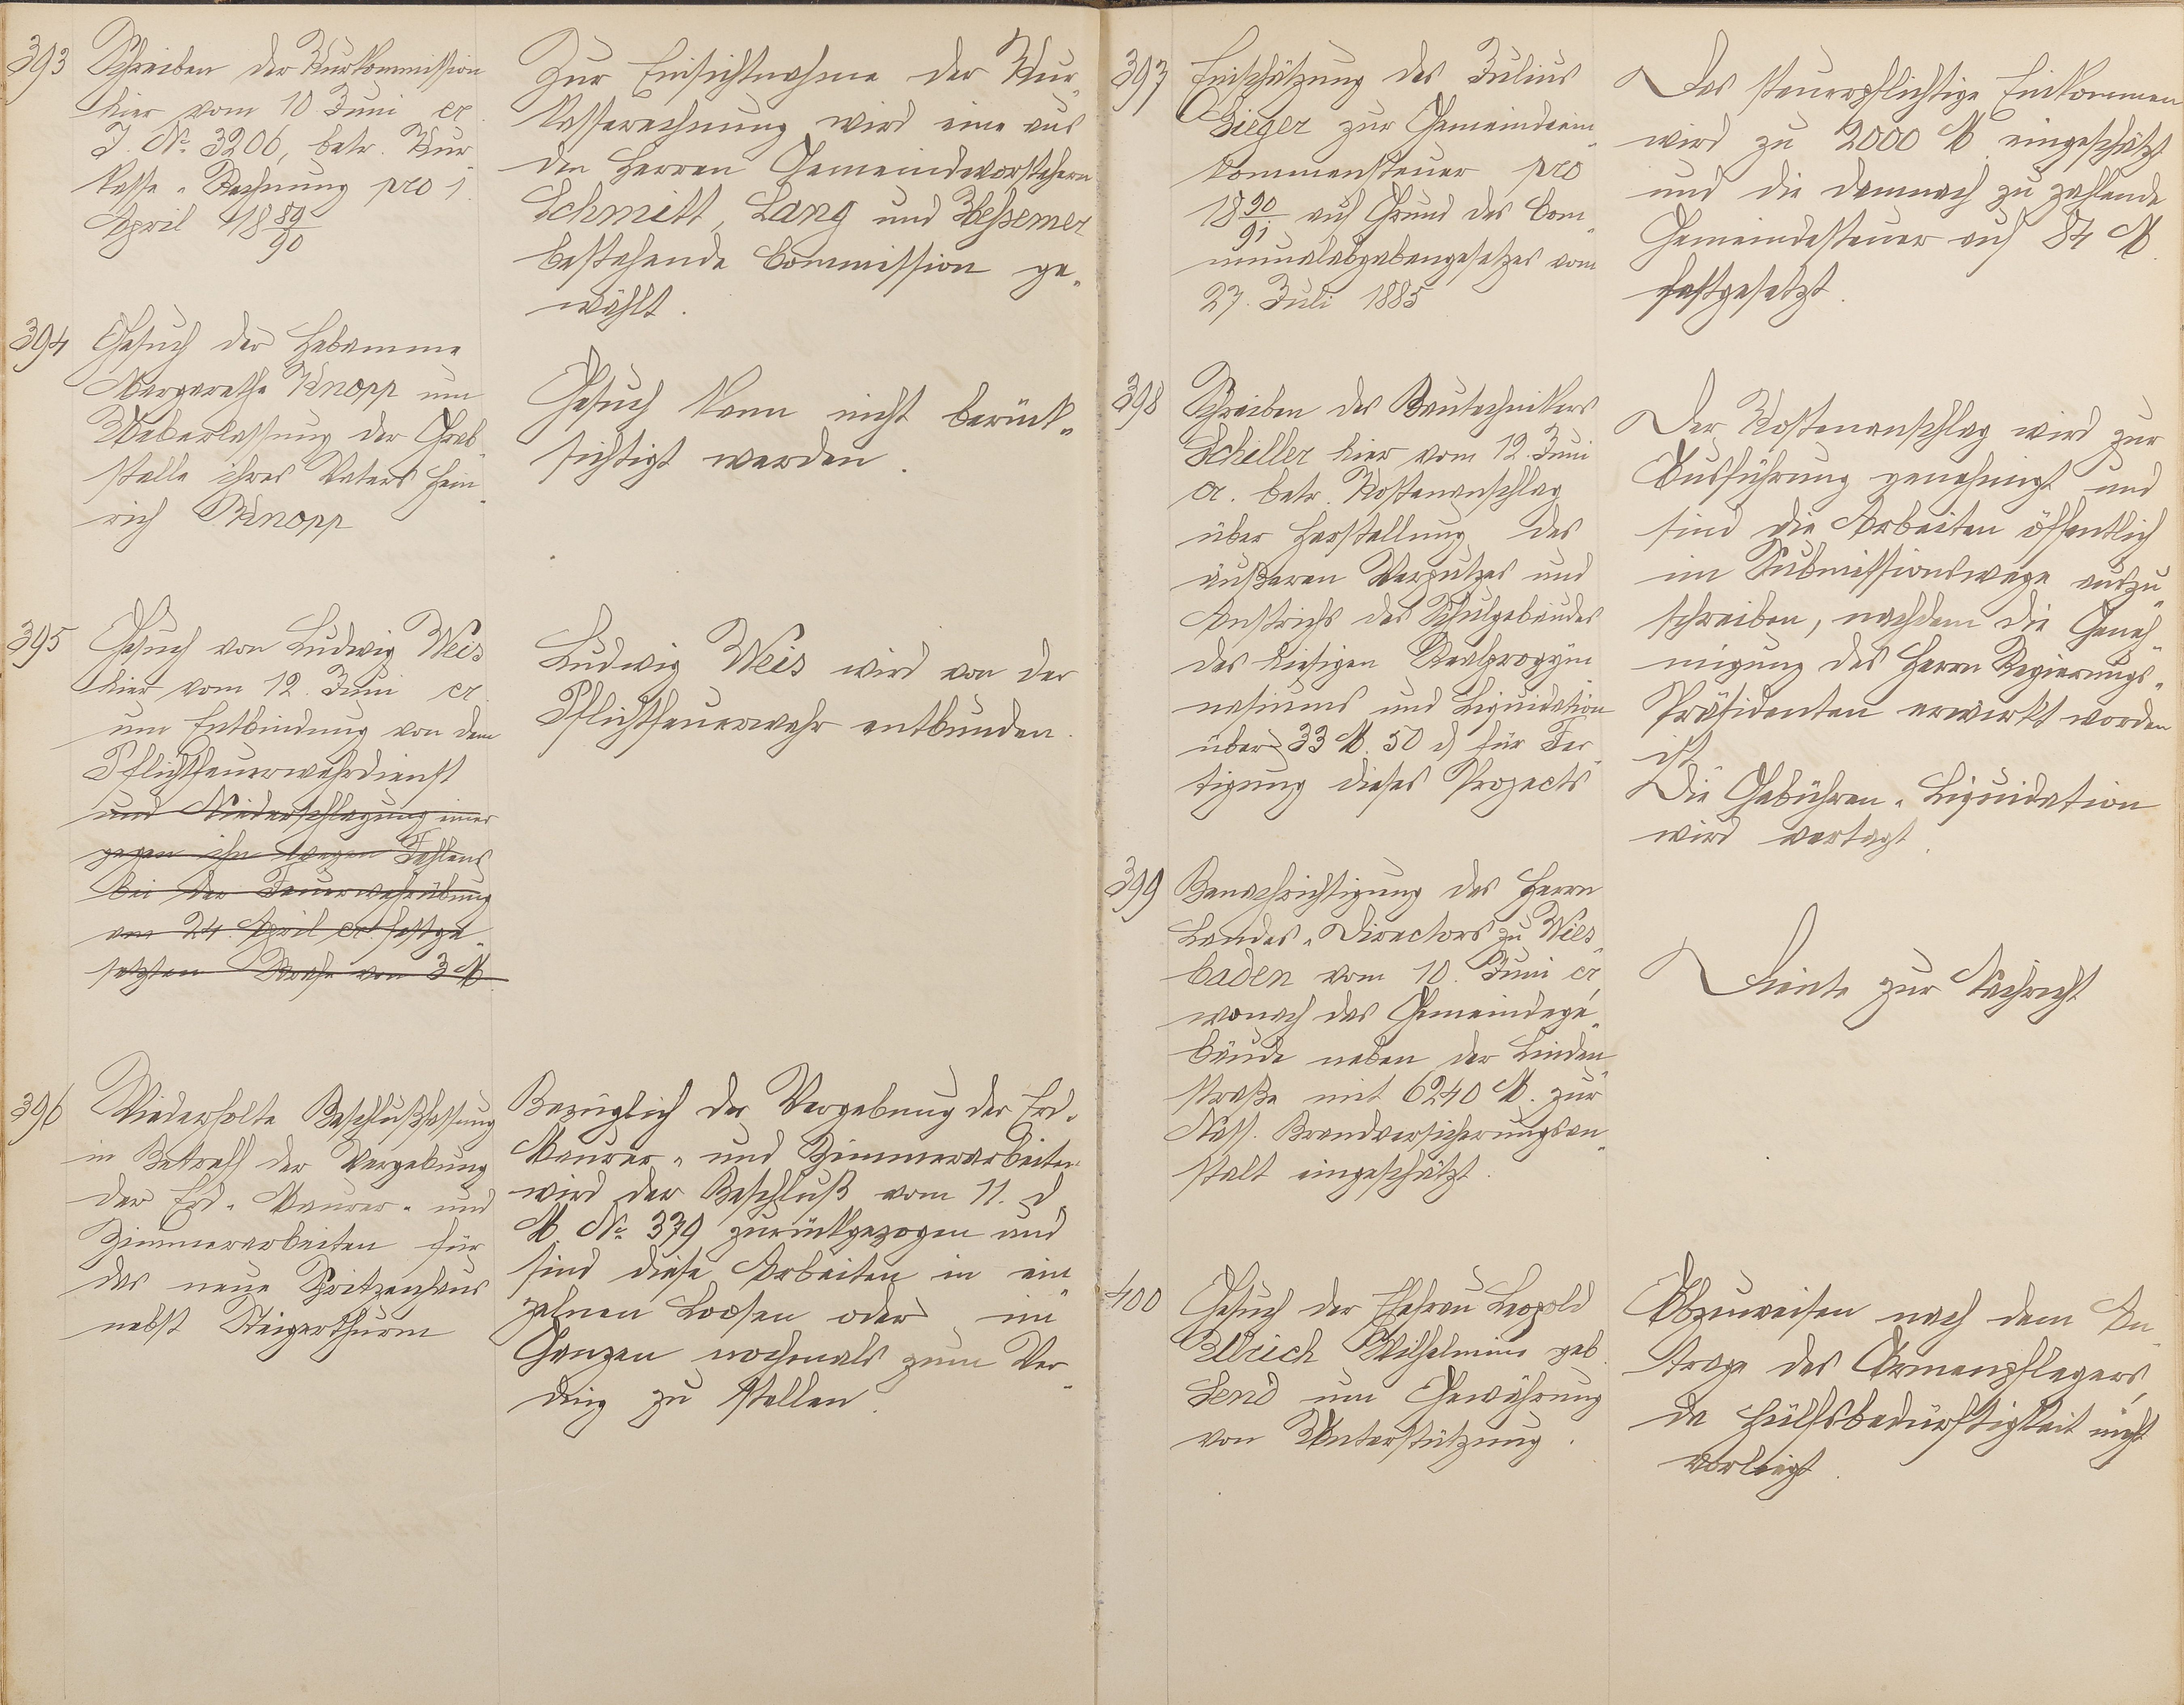 393
Schreiben der Kurkommission
hier vom 10. Juni cr
J. No. 3206, betr. Kur-
kasse-Rechnung pro 1.
April 1889/90
Zur Einsichtnahme der Kur-
kasserechnung wird eine aus
den Herren Gemeindevorstehern
Schmitt, Lang und Hessemer
bestehende Commission ge-
wählt.
394
Gesuch der Hebamme
Margarethe Knopp um
Ueberlassung der Grab-
stelle ihres Vaters Hein-
rich Knopp
Gesuch kann nicht berück-
sichtigt werden.
395
Gesuch von Ludwig Weis
hier vom 12. Juni cr.
um Entbindung von dem
Pflichtfeuerwehrdienst
und Niederschlagung einer
gegen ihn wegen Fehlens
bei der Feuerwehrübung
am 24. April cr. festge-
setzten Strafe von 3 M.
Ludwig Weis wird von der
Pflichtfeuerwehr entbunden.
396
Wiederholte Beschlußfassung
in Betreff der Vergebung
der Erd- Maurer- und
Zimmerarbeiten für
das neue Spritzenhaus
nebst Steigerthurm
Bezüglich der Vergebung der Erd-
Maurer- und Zimmerarbeiten
wird der Beschluß vom 11. d.
M. No. 379 zurückgezogen und
sind diese Arbeiten in ein-
zelnen Loosen oder im
Ganzen nochmals zum Ver-
ding zu stellen.
397
Einschätzung des Julius
Sieger zur Gemeindeein-
kommensteuer pro
1890/91 auf Grund des Com-
munalabgabengesetzes vom
27. Juli 1885
Das steuerpflichtige Einkommen
wird zu 2000 M. eingeschätzt
und die demnach zu zahlende
Gemeindesteuer auf 84 M.
festgesetzt.
398
Schreiben des Bautechnikers
Schiller hier vom 12. Juni
cr. betr. Kostenanschlag
über Herstellung des
äußeren Verputzes und
Anstrichs des Schulgebäudes
des hiesigen Realprogym-
nasiums und Liquidation
über 33 M. 50 d für Fer-
tigung dieses Projects
Der Kostenanschlag wird zur
Ausführung genehmigt und
sind die Arbeiten öffentlich
im Submissionswege auszu-
schreiben, nachdem die Geneh-
migung des Herrn Regierungs-
Präsidenten erwirkt worden
ist.
Die Gebühren-Liquidation
wird vertagt.
399
Benachrichtigung des Herrn
Landes-Directors zu Wies-
baden vom 10. Juni cr,
wonach das Gemeindege-
bäude neben der Linden-
straße mit 6240 M. zur
Nass. Brandversicherungsan-
stalt eingeschätzt.
Diente zur Nachricht
400
Gesuch der Ehefrau Leopold
Ullrich Wilhelmine geb.
Send um Gewährung
von Unterstützung.
Abzuweisen nach dem An-
trage des Armenpflegers,
da Hülfsbedürftigkeit nicht
vorliegt.